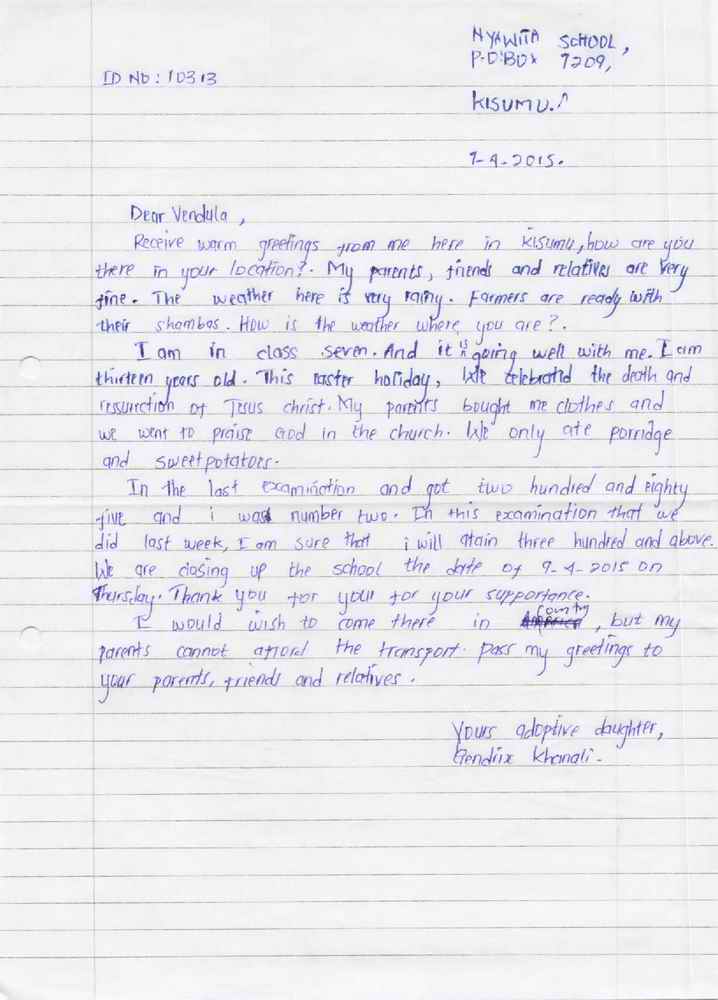 NYAWITA SCHOOL,
P.O.BOX 7209,
ID NO: 10313
KISUMU.
7-4-2015.
Dear Vendula,
Receive warm greetings from me here in kisumu, how are you
there in your location?. My parents, friends and relatives are very
fine. The weather here is very rainy. Farmers are ready with
their shambas. How is the weather where you are?.
I am in class seven. And it is going well with me. I am
thirteen years old. This easter holiday, We celebrated the death and
resurrection of Jesus christ. My parents bought me clothes and
we went to praise God in the church. We only ate porridge
and sweetpotatoes.
In the last examination and got two hundred and eighty
five and i was number two. In this examination that we
did last week, I am sure that i will atain three hundred and above.
We are closing up the school the date of 9-4-2015 on
Thursday. Thank you for your for your supportance.
I would wish to come there in county, but my
parents cannot afford the transport. pass my greetings to
your parents, friends and relatives.
Yours adoptive daughter,
Khanali.